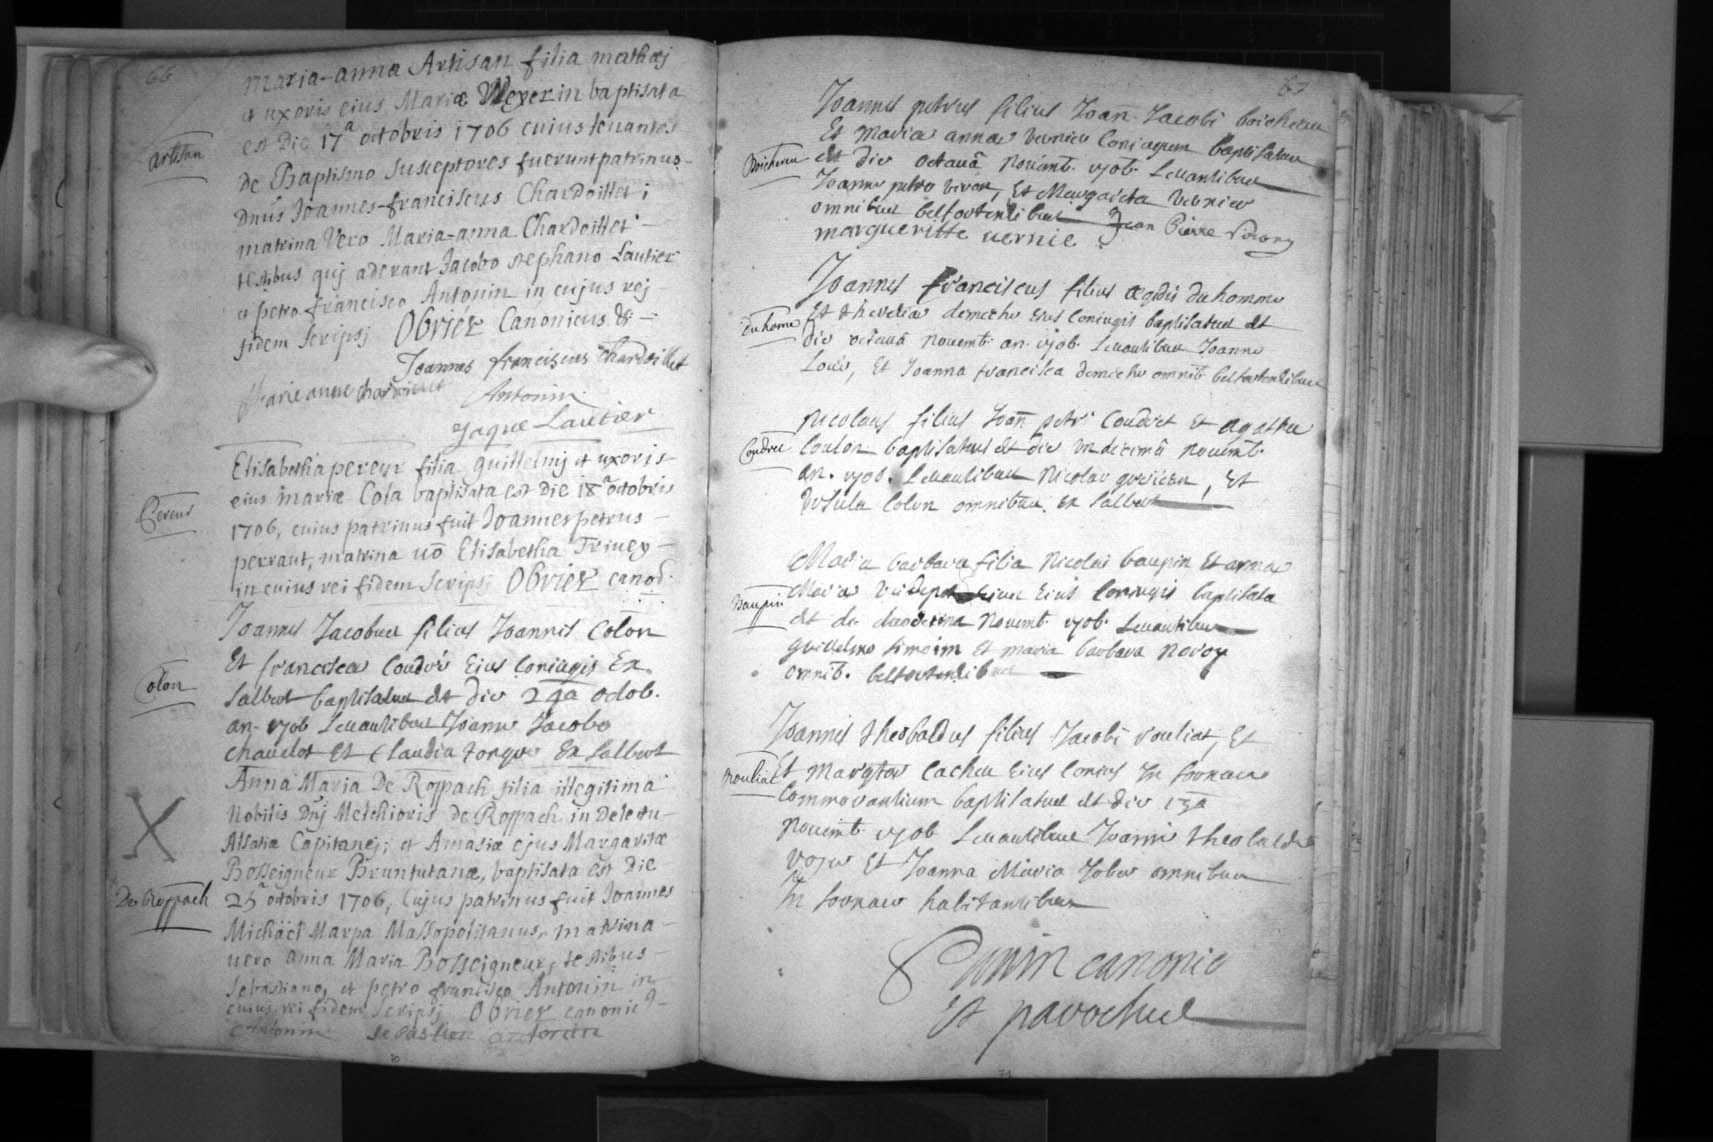 66
Maria-anna Artisan filia mathæj
et uxoris eius Mariæ Meyerin baptisata
est Die 17a octobris 1706 cuius levantes
artisan
de Baptismo susceptores fuerunt patrinus
Dnus Joannes-franciscus Chardoillet;
matrina Vero Maria-anna Chardoillet
testibus quj aderant Jacobo stephano Lautier
et petro francisco Antonin in cujus rej
fidem scripsj Obrier Canonicus &
Joannes franciscus Chardoillet
Marie anne chardoillet
Antonin
Jaque Lautier
Elisabetha pereur filia guillelmj et uxoris
eius mariæ Cola baptisata est Die 18a octobris
Pereur
1706, cuius patrinus fuit Joannes petrus
perraut, matrina uo Elisabetha Triuey
in cuius rei fidem scripsj Obrier canod.
Joannes Jacobus filius Joannis Colon
Et francisca Coudré Eius Coniugis Ex
Colon
Salbert baptisatus est die octob.
an. 1706 Levantibus Joanne Jacobo
chauelot Et Claudia Ex Salbert
Anna Maria De Roppach filia illegitima
Nobilis Dnj Melchioris de Roppach in Delectu
Alsatiæ Capitanej; et Amasiæ ejus Margaritæ
Bosseigneur Bruntutanæ, baptisata est Die
De Roppach
25a octobris 1706, Cujus patrinus fuit Joannes
Michäel Marpa Massopolitanus, matrina
uero anna Maria Bosseigneur, testibus
Sebastiano, et petro francisco Antonin in
cuius rei fidem scripsj Obrier canonic9
Antonin Sebastien antonin
67
Joannes petrus filius Joan Jacobi boicheux
Et Maria anna vernier Coniugum baptisatus
Boicheux
est die octauâ Nouemb. 1706 Levantibus
Joanne petro Et Margarita Vernier
omnibus belfortensibus Jean Pierre
margueritte uernie
Joannes franciscus filius ægidii du homme
Et theresia demeche eius Coniugis baptisatus est
du home
die octauâ Nouemb. an. 1706. Levantibus Joanne
Loüis, Et Joanna francisca demeche omnib. belfortensibus
Nicolaus filius Joan petri Coudret Et Agatha
Coudret
Coulon baptisatus est die undecimâ Nouemb.
an. 1706. Levantibus Nicolao , Et
Vrsula Colon omnibus. Ex Salbert
Maria barbara filia Nicolai baupin Et anna
Baupin
Maria eius Coniugis baptisata
est die duodecima Nouemb. 1706 Levantibus
guillelmo simonin Et maria barbara
omnib. belfortensibus
Joannes theobaldus filius Jacobi rouliat, Et
rouliat
Et Margta Cacheu Eius Coniux In fornace
Commorantium baptisatus est die 13a
Nouemb. 1706 Levantibus Joanne theobaldo
Et Joanna Maria omnibus
In fornace habitantibus
canonic
Et parochus